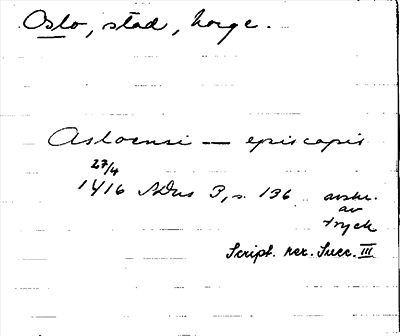 Oslo, stad, Norge.
Asloensi — episcopis
27/4
1416 ADus 3, s. 136 avskr.
av
tryck
Script. rer. Suec. III